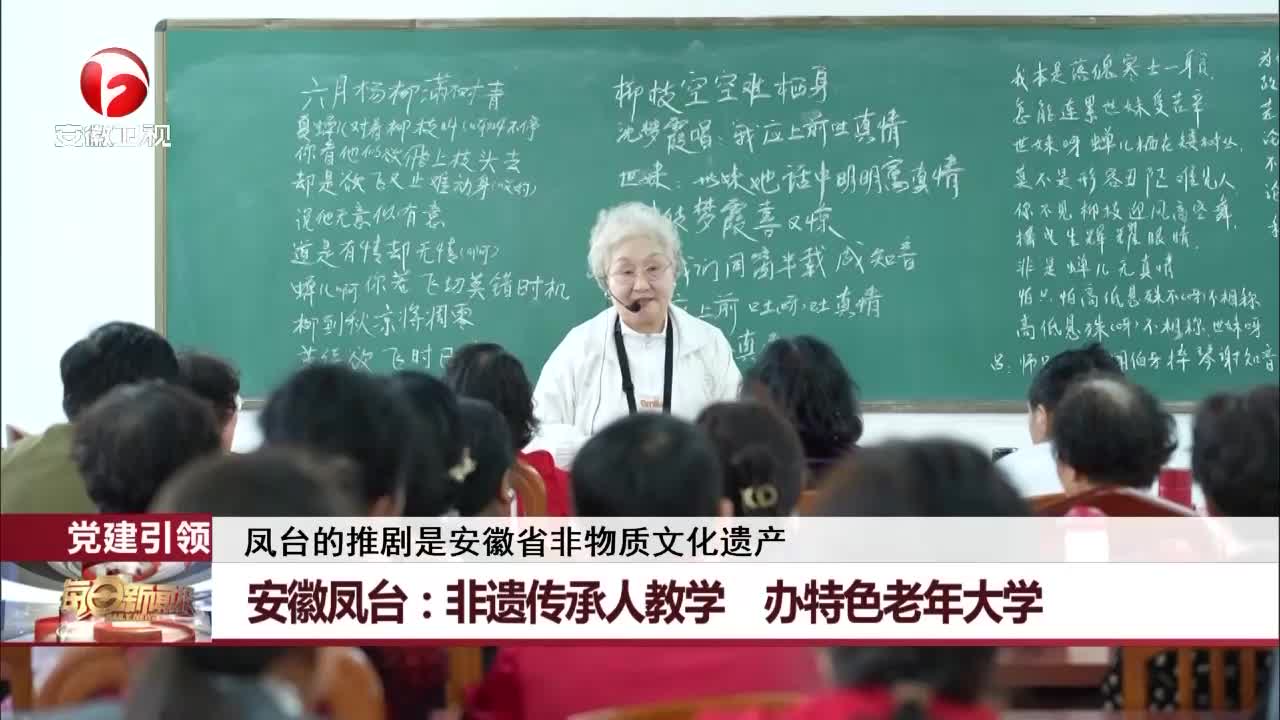 安徽卫视
六月杨柳满树青
真蝉儿对着柳枝叫(呀)叫不停
你看他们欲飞上枝头去
却是欲飞又止难动身
说他无意似有意
道是有情却无情(啊)
蝉儿啊你若飞切莫错时机
柳到秋凉将凋零
欲飞时已
柳枝空空难栖身
沈梦霞唱:我应上前吐真情
世妹:世妹她话中明明寓真情
梦霞喜又惊
我们同窗半载成知音
上前吐呀吐真情
真
我本是落魄寒士一身贫
怎能连累世妹受苦辛
世妹呀蝉儿栖在矮树丛
莫不是形容丑陋难见人
你不见柳枝迎风高空舞
生辉耀眼睛
非是蝉儿无真情
怕只怕高低悬殊不(呀)不相称
高低悬殊(呀)不相称世妹呀
伯牙摔琴谢知音
党建引领
凤台的推剧是安徽省非物质文化遗产
每日新闻报
DAILY NEWS
安徽凤台：非遗传承人教学 办特色老年大学